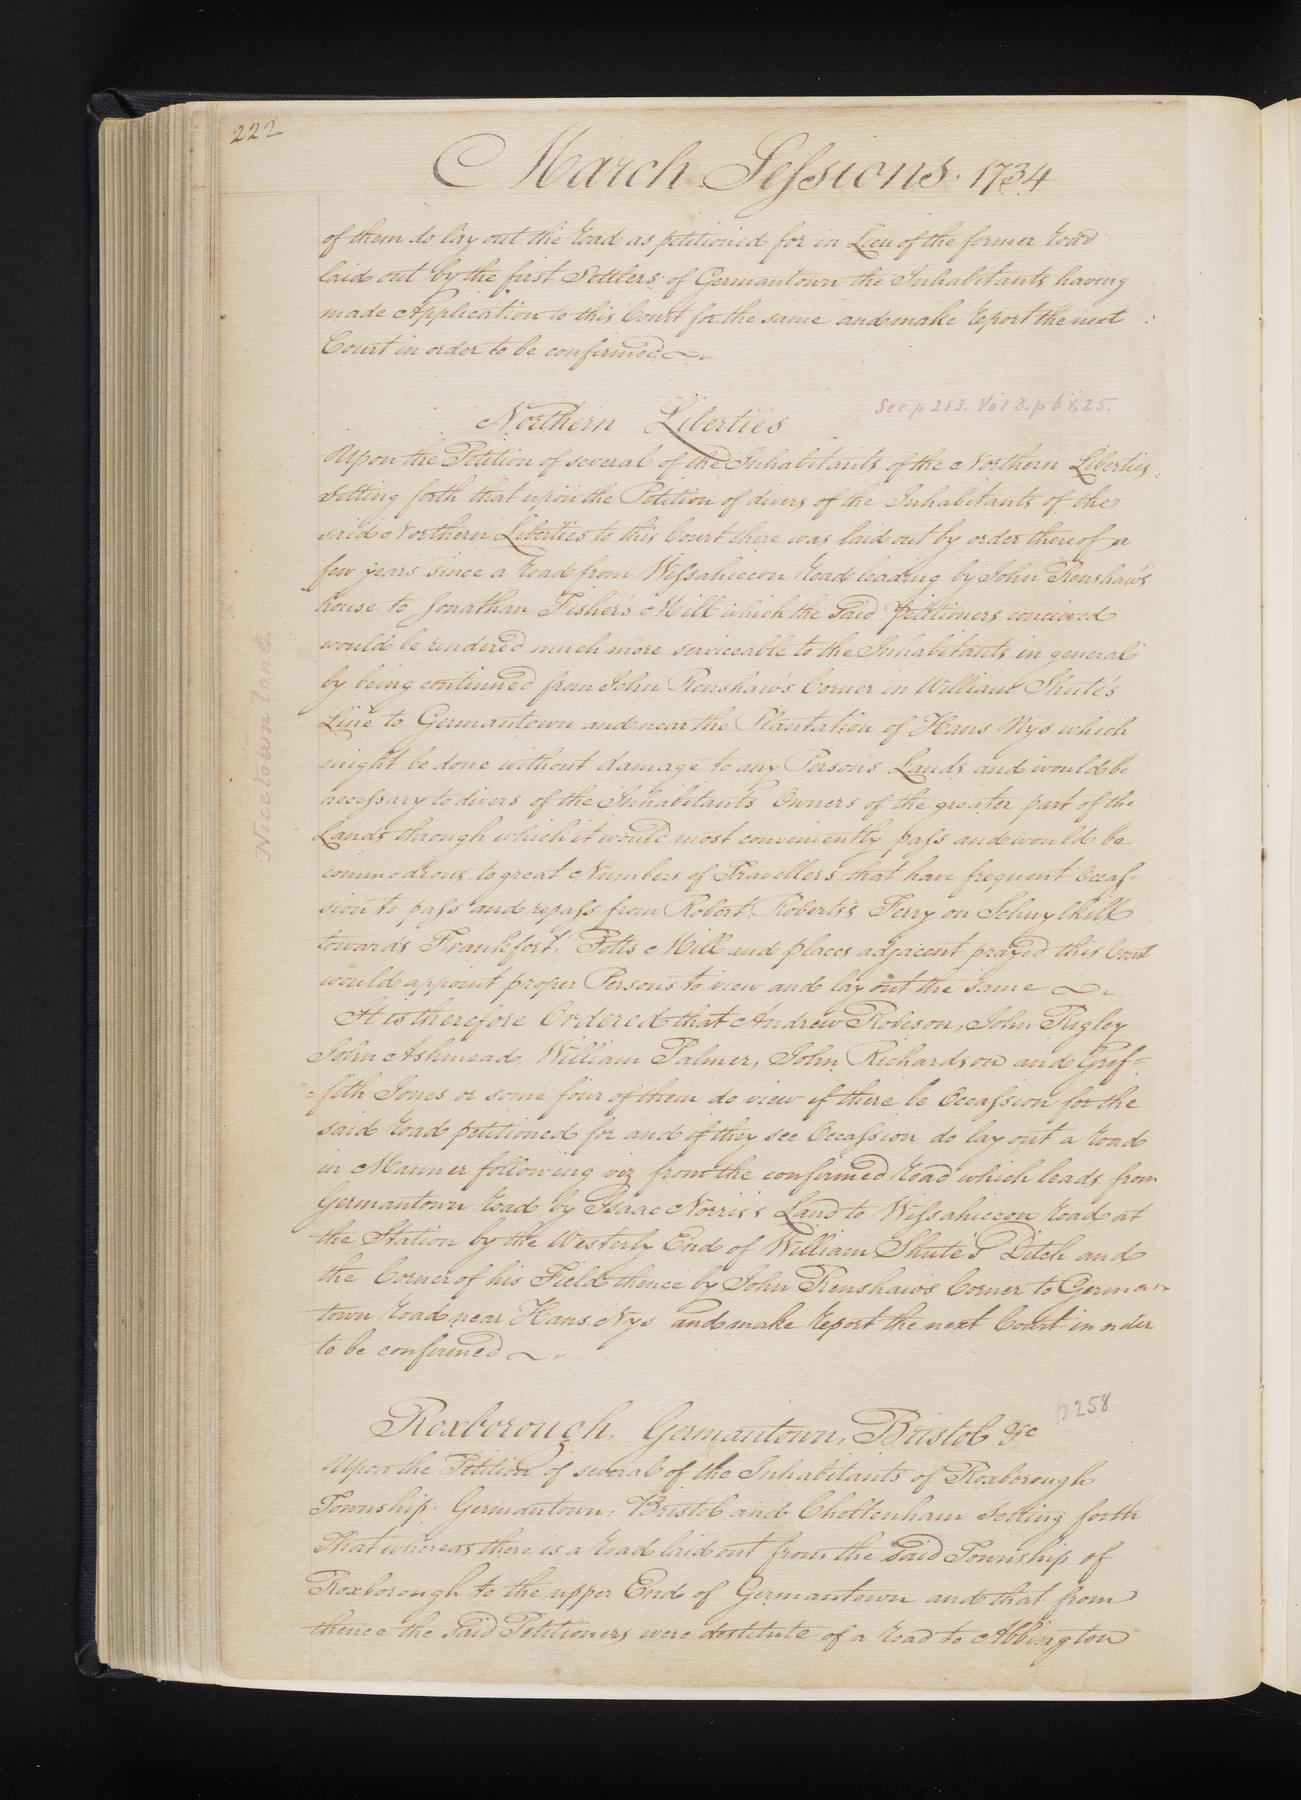 222
March Sessions. 1734
of them do lay out the Road as petitioned for in Lieu of the former Road
laid out by the first Settlers of Germantown the Inhabitants having
made Application to this Court for the same and make Report the next
Court in order to be confirmed
See p 283. Vol 3. p 6 & 25.
Northern Liberties
Upon the Petition of several of the Inhabitants of the Northern Liberties
Setting forth that upon the Petition of divers of the Inhabitants of the
said Northern Liberties to this Court there was laid out by order thereof a
few years since a Road from Wissahiccon Road leading by John Renshaw's
house to Jonathan Fisher's Mill which the said Petitioners concieved
would be rendered much more serviceable to the Inhabitants in general
by being continued from John Renshaw's Corner in William Shute's
Line to Germantown and near the Plantation of Hans Nys which
might be done without damage to any Person's Lands and would be
necessary to divers of the Inhabitants Owners of the greater part of the
Lands through which it would most conveniently pass and would be
commodious to great Numbers of Travellers that have frequent Occas-
sion to pass and repass from Robert Roberts's Ferry on Schuylkill
towards Frankfort, Potts Mill and places adjacent prayed this Court
would appoint proper Persons to view and lay out the same
It is therefore Ordered that Andrew Robeson, John Rigley
John Ashmead, William Palmer, John Richardson and Grif-
=fith Jones or some four of them do view if there be Occassion for the
said Road petitioned for and if they see Occassion do lay out a Road
in Manner following viz from the confirmed Road which leads from
Germantown Road by Isaac Norris's Land to Wissahiccon Road at
the Station by the Westerly End of William Shute's Ditch and
the Corner of his Field thence by John Renshaws Corner to German
town Road near Hans Nys and make Report the next Court in order
to be confirmed
Nicetown Lane
p 258
Roxborough, Germantown, Bristol &c
Upon the Petition of several of the Inhabitants of Roxborough
Township. Germantown, Bristol and Cheltenham setting forth
That whereas there is a Road laid out from the said Township of
Roxborough to the upper End of Germantown and that from
thence the said Petitioners were destitute of a Road to Abbington